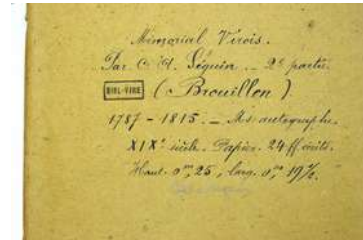 Mémorial Virois.
Par C. A. Séguin _ 2e partie.
BIBL-VIRE (Brouillon).
1787 - 1815. _ Ms autographe.
XIXe siècle. Papier. 24 ff écrits.
Haut. 0m,25, larg. 0m,19 1/2.